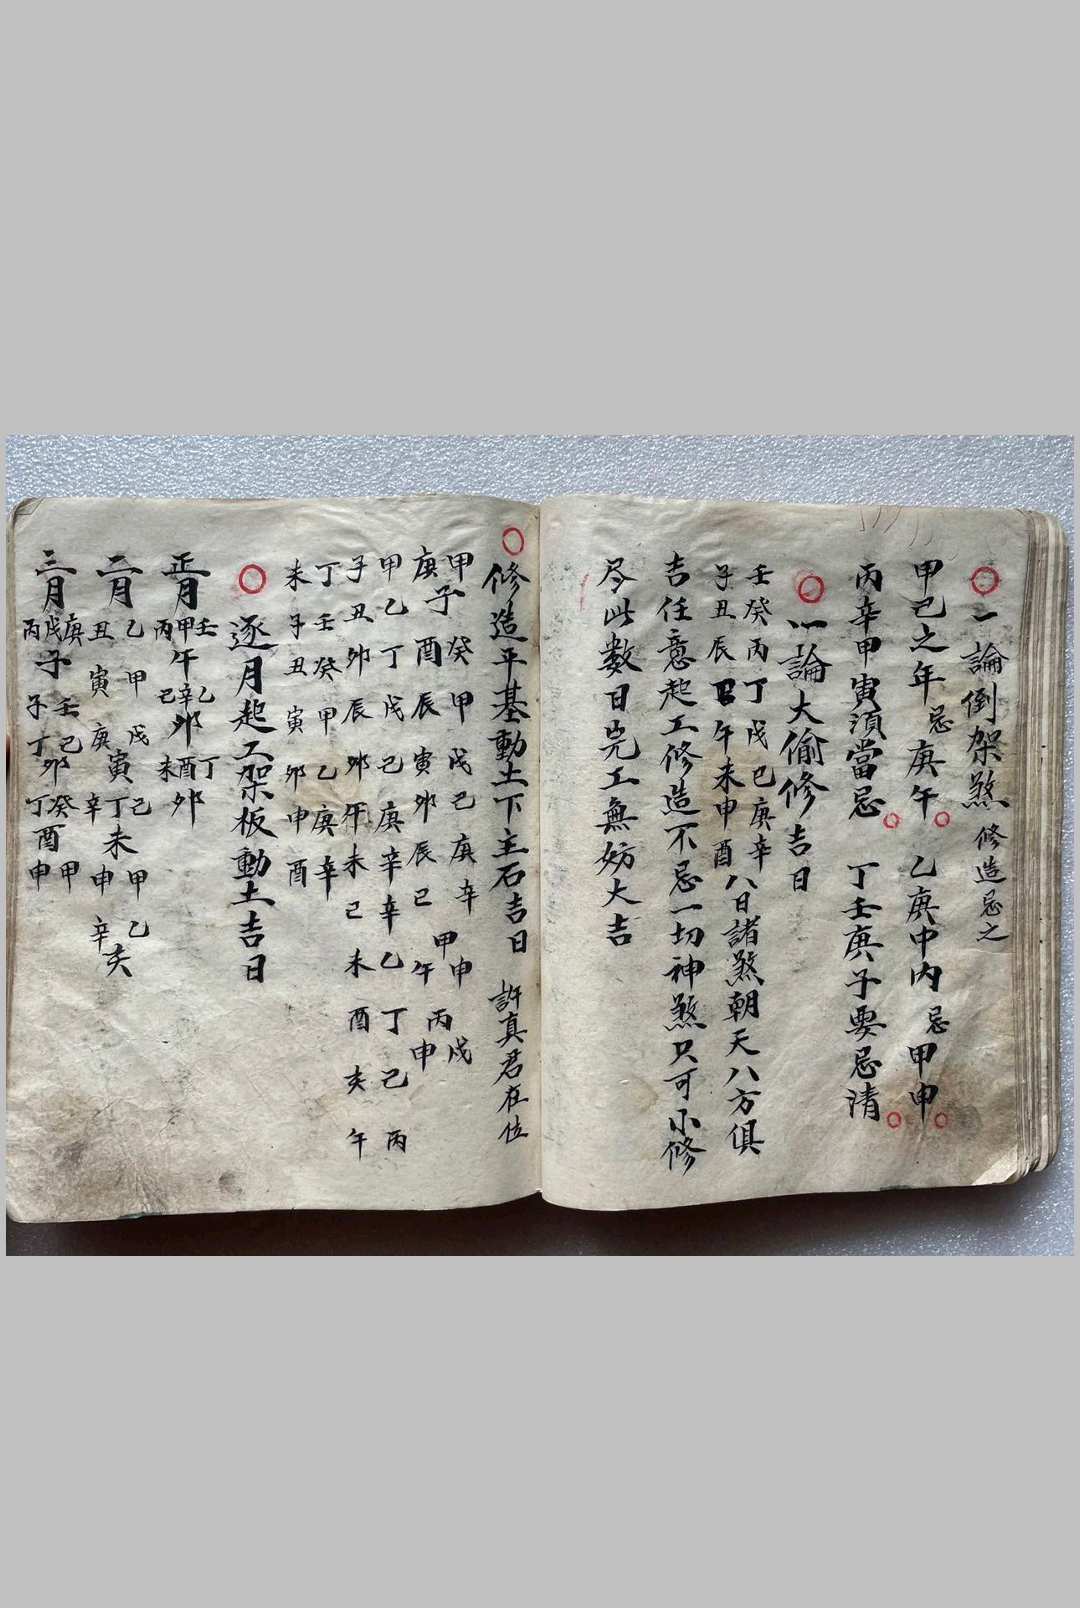 一論倒架煞 修造忌之
甲己之年忌庚午 乙庚申內忌甲申
丙辛甲寅須當忌 丁壬庚子要忌清
一論大偷修吉日
壬癸丙丁戊己庚辛
子丑辰巳午未申酉
八日諸煞朝天八方俱
吉任意起工修造不忌一切神煞只可小修
尽此數日完工無妨大吉
修造平基動土下主石吉日 許真君在位
甲子 癸酉 甲辰 戊寅 己卯 庚辰 辛巳 甲午 甲申 丙申 戊
庚
甲乙丁戊己庚辛辛乙丁己丙
子丑卯辰卯午未己未酉亥午
丁壬癸甲乙庚辛
未子丑寅卯申酉
逐月起工架板動土吉日
正月 壬甲丙午 乙辛己卯 丁酉未卯
二月 乙丑 甲寅 戊庚寅 己丁辛未 甲申 乙辛亥
三月 庚戊丙子 壬子 己丁卯 癸丁酉 甲申